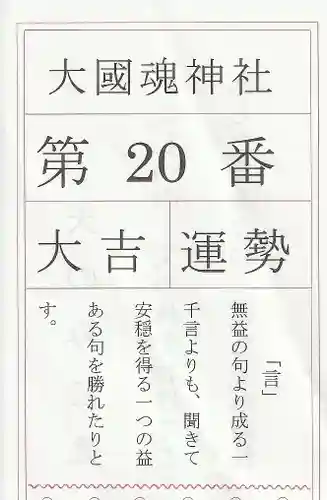 大國魂神社
第 20 番
大吉 運勢
「言」
無益の句より成る一
千言よりも、聞きて
安穏を得る一つの益
ある句を勝れたりと
す。